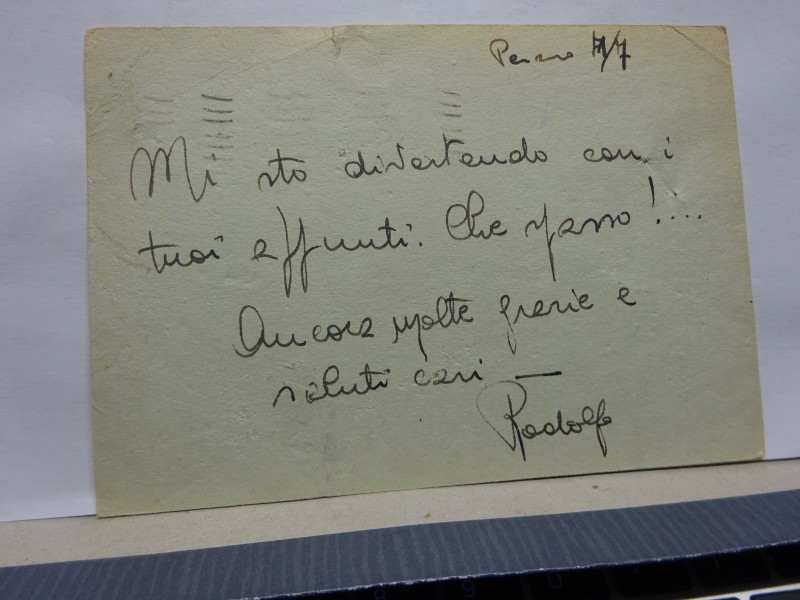 7/7
Mi sto divertendo con i
tuoi appunti. Che spasso!....
Ancora molte grazie e
saluti cari —
Rodolfo